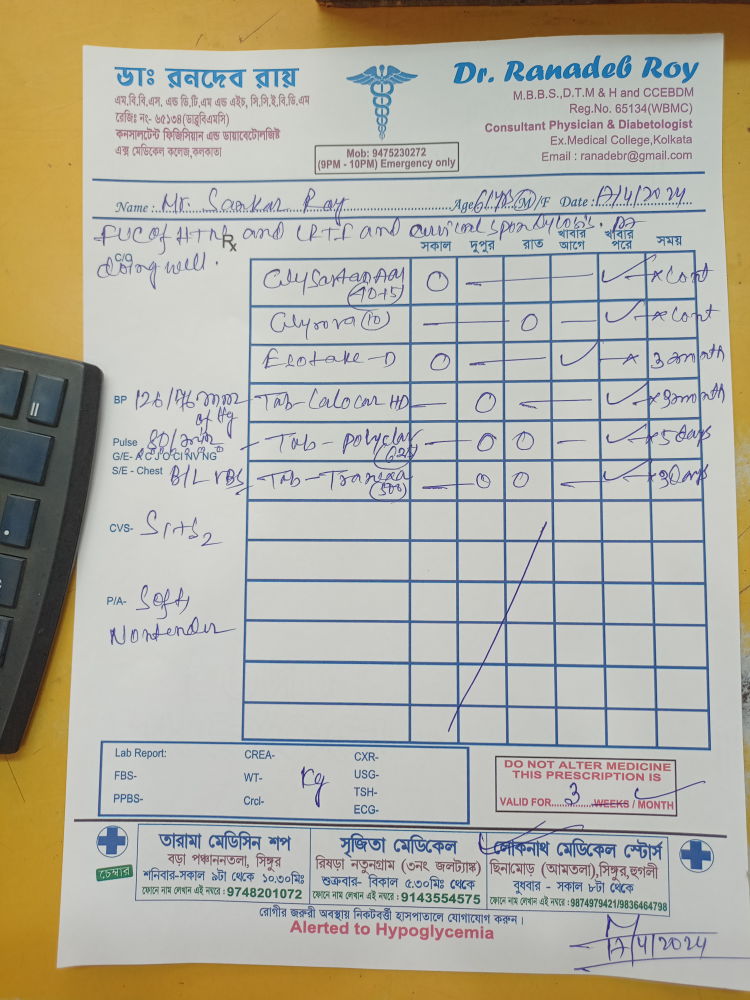 ডাঃ রনদেব রায়
এম.বি.বি.এস, এন্ড ডি,টি,এম এন্ড এইচ, সি,সি,ই,বি,ডি,এম
রেজিঃ নং- ৬৫১৩৪(ডাব্লুবিএমসি)
কনসালটেন্ট ফিজিসিয়ান এন্ড ডায়াবেটোলজিষ্ট
এক্স মেডিকেল কলেজ,কলকাতা
Mob: 9475230272
(9PM - 10PM) Emergency only
Dr. Ranadeb Roy
M.B.B.S.,D.T.M & H and CCEBDM
Reg.No. 65134(WBMC)
Consultant Physician & Diabetologist
Ex.Medical College,Kolkata
Email : ranadebr@gmail.com
Name : Mr. Sankar Ray Age 61 M/F Date : 17/4/2024
FUC of HTN and LRTI and cervical spondylosis. Pt
doing well.
Rx
C/O
সকাল দুপুর রাত খাবার আগে খাবার পরে সময়
Glysartan AM (40+5) Cont
Glyrova (10) Cont
Esotake-D 3 month
BP 126/76 mm of Hg
Tab- Calocar HD 3 month
Pulse 80/min
Tab- Polyclav (625) 5 days
G/E- A C J O C N V N G
S/E - Chest B/L VBS
Tab- Tranexa (500) 3 Days
CVS- S1+S2
P/A- Soft,
Nontender
Lab Report: CREA- CXR-
FBS- WT- Kg USG-
TSH-
PPBS- Crcl- ECG-
DO NOT ALTER MEDICINE
THIS PRESCRIPTION IS
VALID FOR 3 WEEKS / MONTH
চেম্বার
তারামা মেডিসিন শপ
বড়া পঞ্চাননতলা, সিঙ্গুর
শনিবার-সকাল ৯টা থেকে ১০.৩০মিঃ
ফোনে নাম লেখান এই নম্বরে : 9748201072
সৃজিতা মেডিকেল
রিষড়া নতুনগ্রাম (৩নং জলট্যাঙ্ক)
শুক্রবার- বিকাল ৫.৩০মিঃ থেকে
ফোনে নাম লেখান এই নম্বরে : 9143554575
লোকনাথ মেডিকেল স্টোর্স
ছিনামোড় (আমতলা),সিঙ্গুর,হুগলী
বুধবার - সকাল ৮টা থেকে
ফোনে নাম লেখান এই নম্বরে : 9874979421/9836464798
রোগীর জরুরী অবস্থায় নিকটবর্তী হাসপাতালে যোগাযোগ করুন।
Alerted to Hypoglycemia
17/4/2024